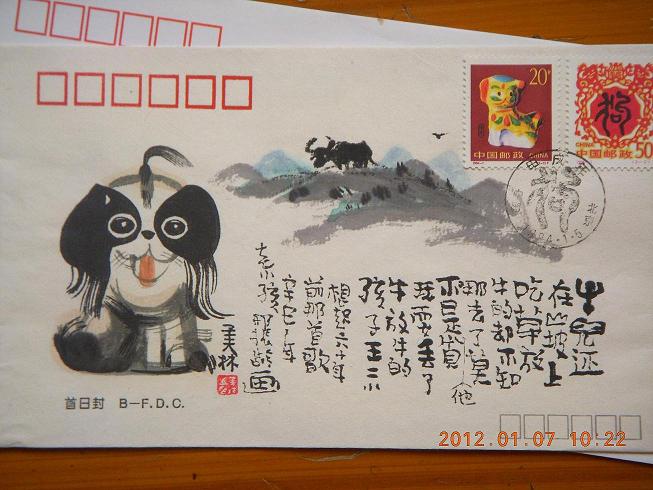 20分
中国邮政
CHINA
狗
CHINA
中国邮政 50
甲戌年
北京
牛兒还
在山坡上
吃草放
牛的却不知
哪去了莫
不是他貪
玩耍丢了
牛放牛的
孩子王二小
想起六十年
前那首歌
辛巳年
画
美林
首日封 B—F.D.C.
2012.01.07 10:22